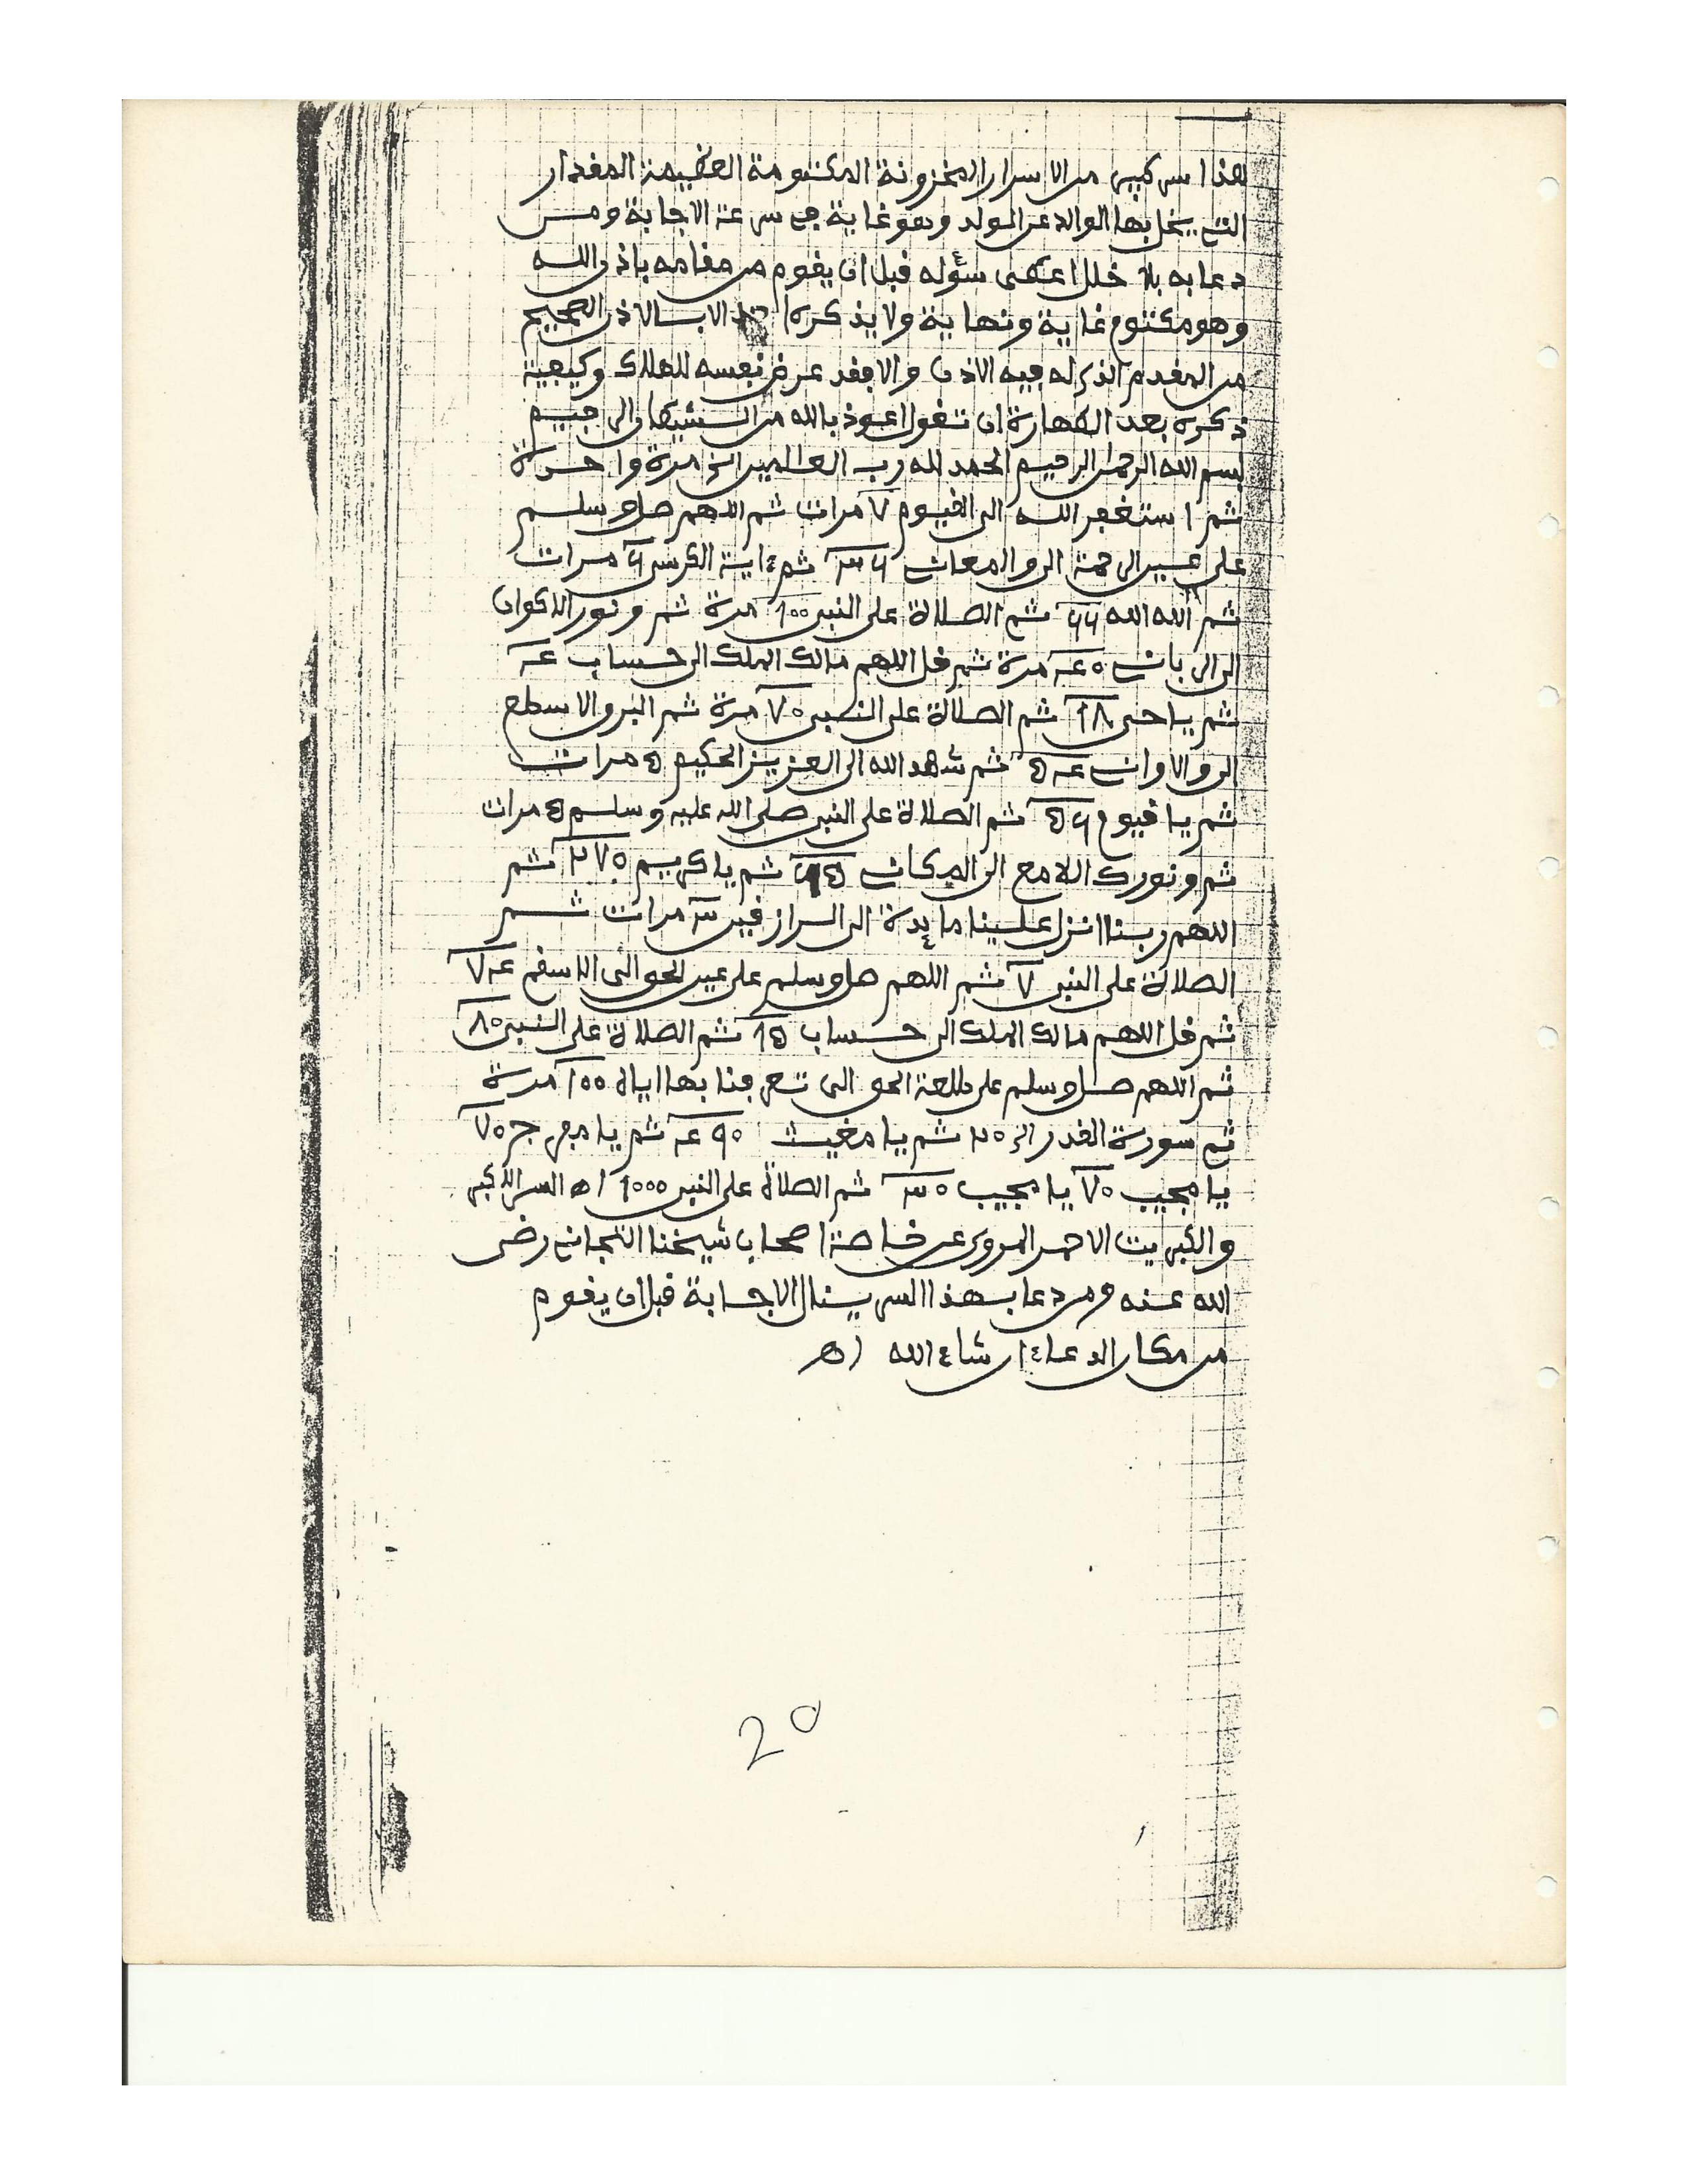 هذا سر كبير من الاسرار المخزونة المكتومة العظيمة المقدار
التي يبخل بها الوالد عن الولد وهو غاية في سرعة الاجابة ومن
دعا به بلا خلل اعطى سئوله قبل ان يقوم من مقامه باذن الله
وهو مكتوم غاية ونهاية ولا يذكره الا بالاذن الصحيح
من المقدم الذي له فيه الاذن والا فقد عرض نفسه للهلاك وكيفية
ذكره بعد الطهارة ان تقول اعوذ بالله من الشيطان الرجيم
بسم الله الرحمن الرحيم الحمد لله رب العالمين الخ مرة واحدة
ثم استغفر الله الى القيوم ٧ مرات ثم اللهم صل وسلم
على عين الرحمة الى والمعان ثم ءاية الكرسي ٦ مرات
ثم الله الله ٦٦ ثم الصلاة على النبي 100 مرة ثم ونور الاكوان
الى مرة ثم قل اللهم مالك الملك الى حساب
ثم يا حي ١٨ ثم الصلاة على النبي ٧٠ مرة ثم البرق الاسطع
الى والاوان ثم شهد الله الى العزيز الحكيم ٥ مرات
ثم يا قيوم ثم الصلاة على النبي صلى الله عليه وسلم ٥ مرات
ثم ونورك اللامع الى المكان ثم يا كريم ٢٧٠ ثم
اللهم ربنا انزل علينا مائدة الى الرازقين ٣ مرات ثم
الصلاة على النبي ٧ ثم اللهم صل وسلم على عين الحق الى الاسقم
ثم قل اللهم مالك الملك الى حساب ١٥ ثم الصلاة على النبي ٨٠
ثم اللهم صل وسلم على طلعة الحق الى تعرفنا بها اياه 100 مرة
ثم سورة القدر الخ ثم يا مغيث ٩٠ ثم يا مفرج ٧٠
يا مجيب ٧٠ يا مجيب ٣٠ ثم الصلاة على النبي 1000 اه السر الاكبر
والكبريت الاحمر المروي عن خاصة اصحاب شيخنا التجاني رضي
الله عنه ومن دعا بهذا السر ينال الاجابة قبل ان يقوم
من مكان الدعاء ان شاء الله اه
20